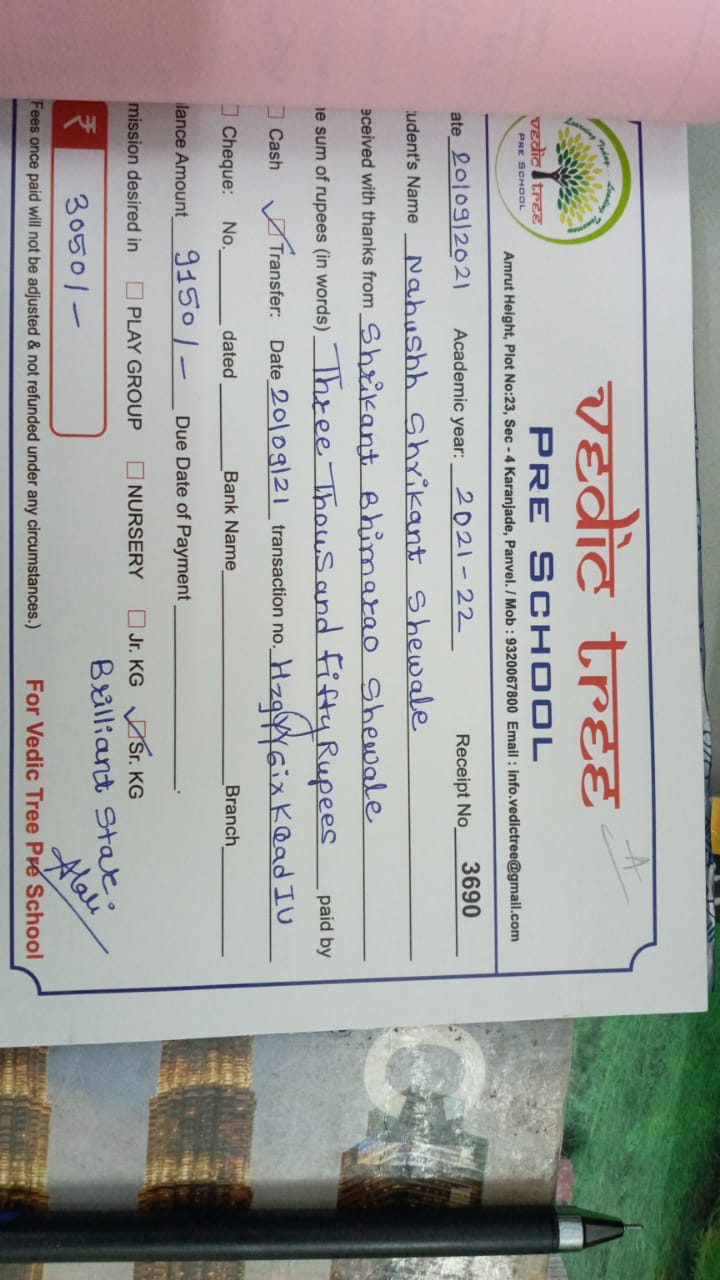 Learning Today... Leading Tomorrow
vedic tree
PRE SCHOOL
vedic tree
PRE SCHOOL
Amrut Height, Plot No:23, Sec - 4 Karanjade, Panvel. / Mob : 9320067800 Email : info.vedictree@gmail.com
ate 20/09/2021 Academic year: 2021-22 Receipt No 3690
udent's Name Nahushh Shrikant Shewale
eceived with thanks from Shrikant Bhimarao Shewale
e sum of rupees (in words) Three Thousand fifty Rupees paid by
Cash Transfer: Date 20/09/21 transaction no.
Cheque: No. dated Bank Name Branch
lance Amount 9150/- Due Date of Payment .
mission desired in PLAY GROUP NURSERY Jr. KG Sr. KG
Brilliant Star.
₹ 3050/-
Fees once paid will not be adjusted & not refunded under any circumstances.) For Vedic Tree Pre School